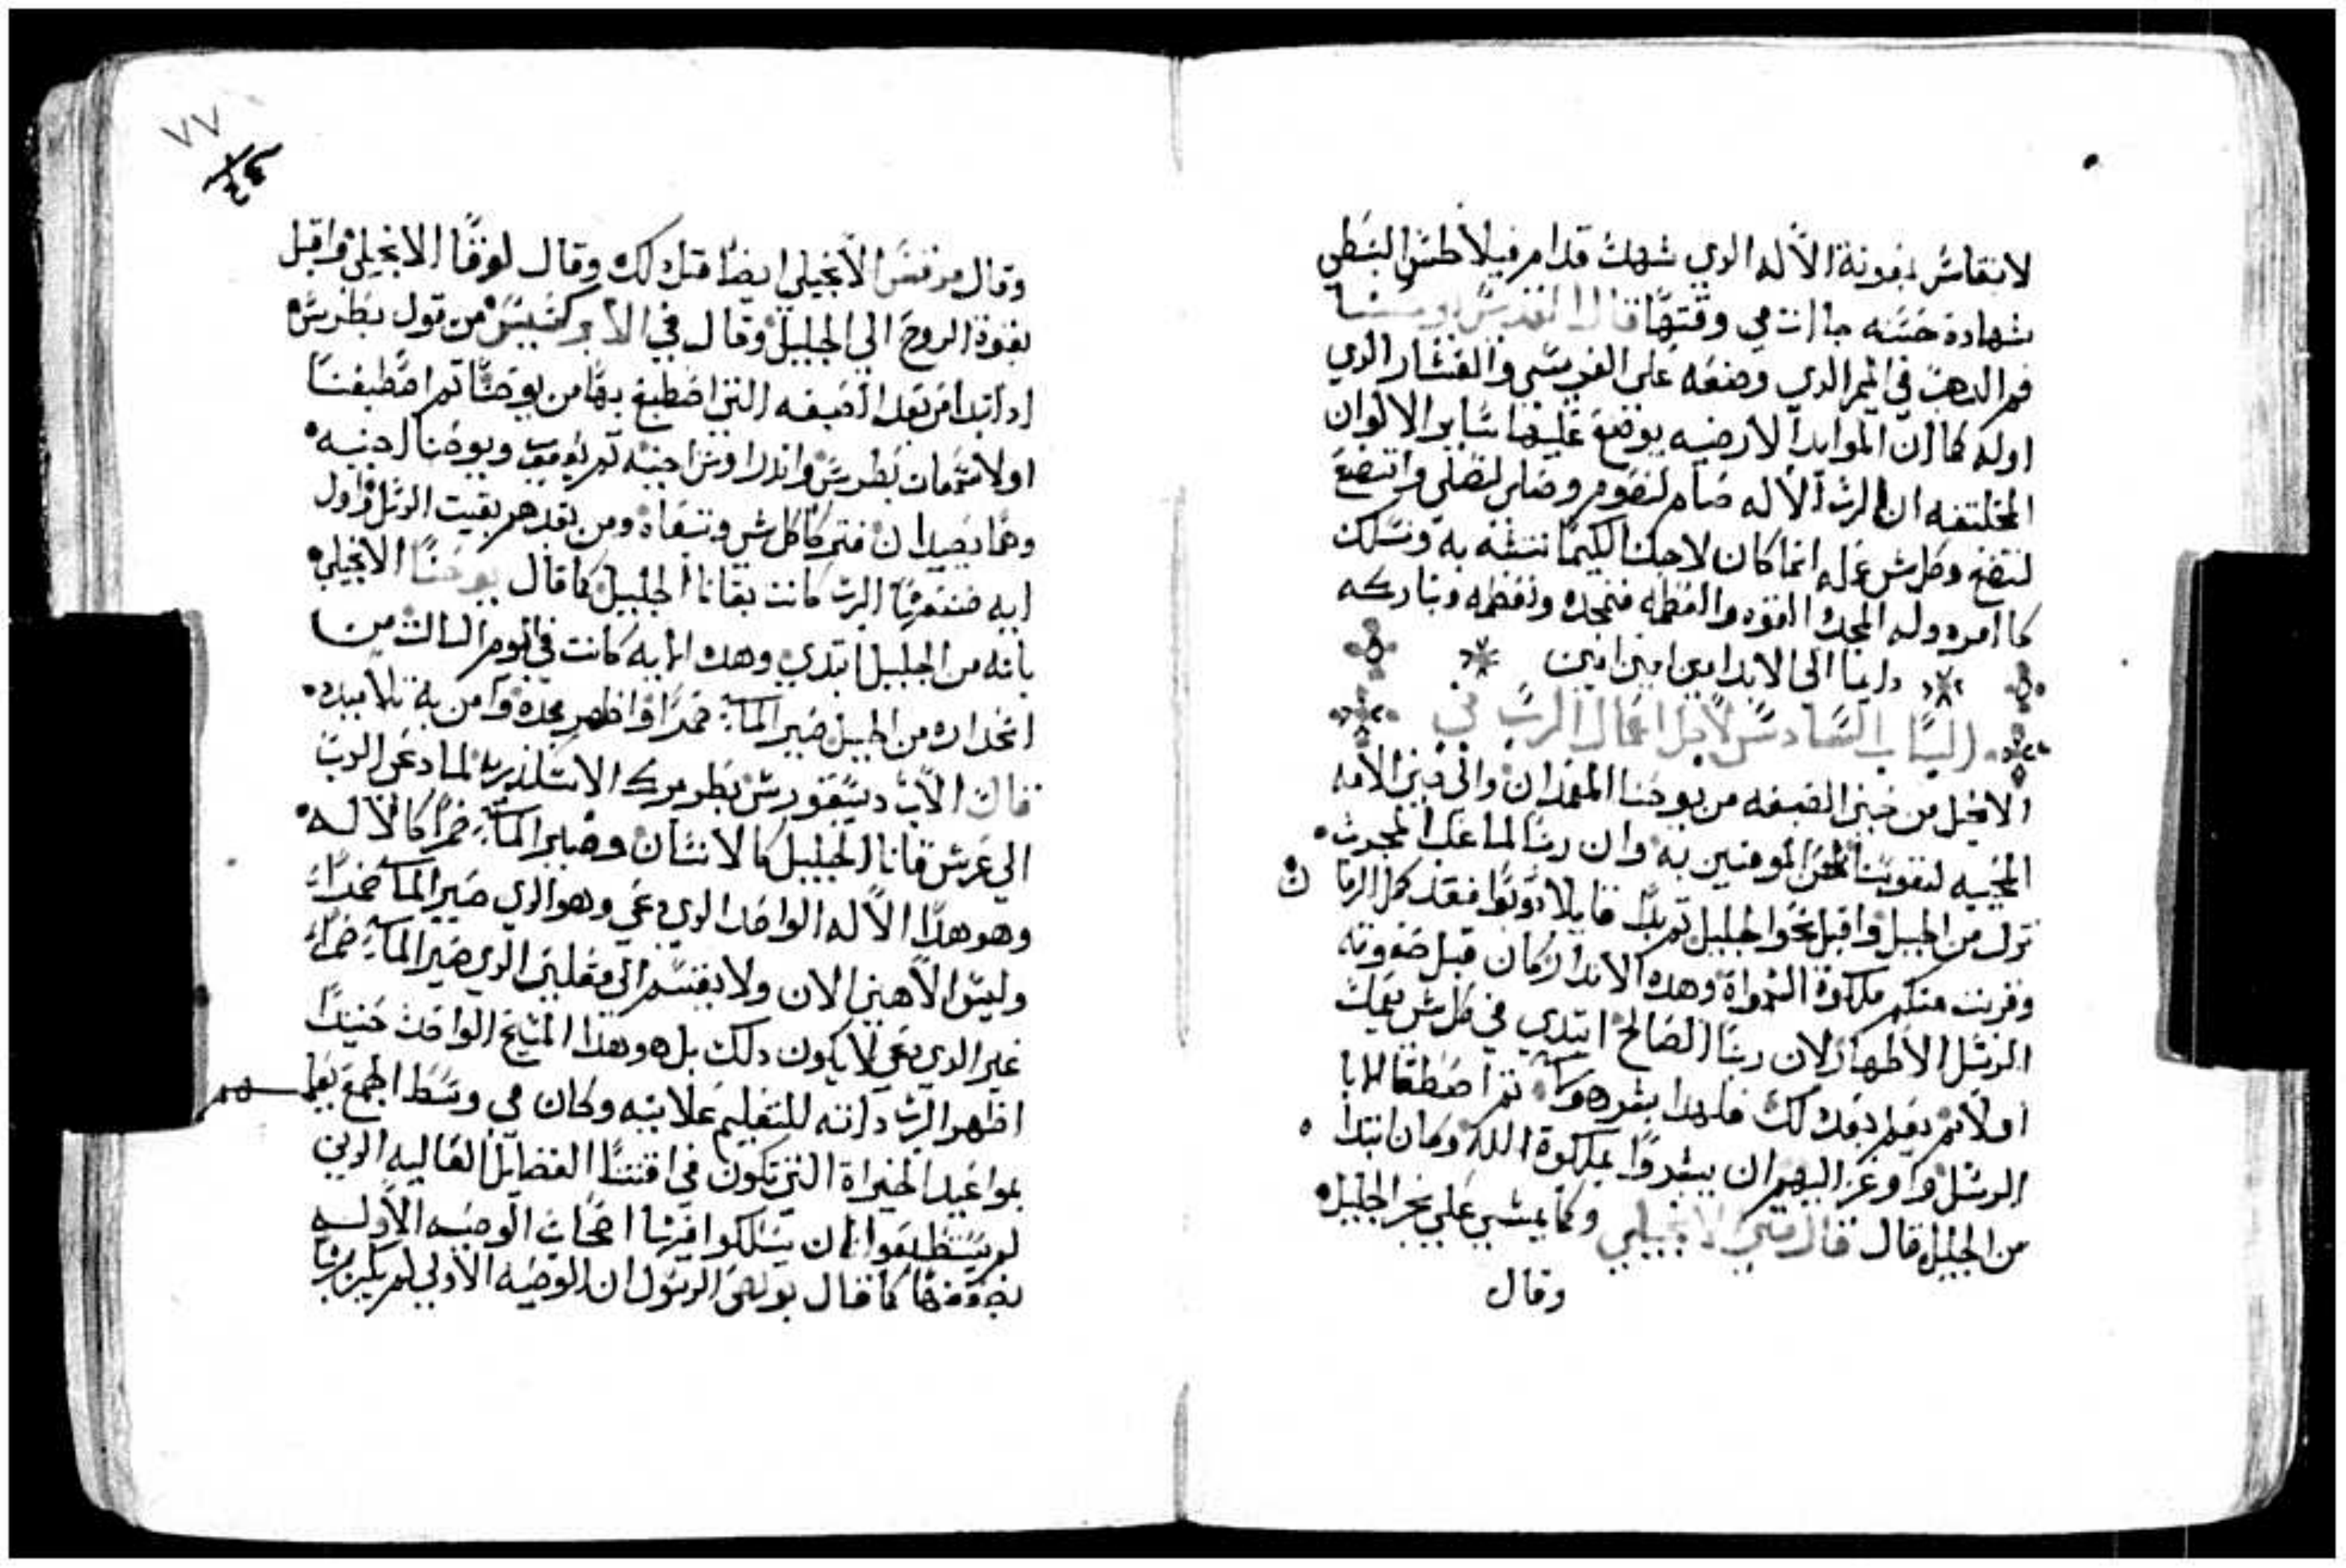 لانتقاش بمعونة الاله الدي شهدت قدام فيلاطس البنطي
شهادة حسنه جا انت في وقتها قال القديس
فم الدهب في الميمر الدي وضعه على الفريسي والعشار الدي
اوله كما ان الموايد الارضيه يوضع عليها ساير الالوان
المختلفه ان الرب الاله صام لنصوم وصلى لنصلي واتضع
لنتضع وكل شي عمله انما كان لاجلنا لكيما نتشبه به ونسلك
كما امر وله المجد القوه والعظمه فنمجده ونعظمه ونباركه
دايما الى الابد امين امين امين
الباب السادس لاجل اعمال الرب في
الانجيل من حين الصبغه من يوحنا المعمدان والى حين الامه
المحييه لتقويتنا نحن المومنين به وان ربنا لما غلب المجرب
نزل من الجبل واقبل نحو الجليل ثم بدا قايلا توبوا فقد كمل الزمان
وقربت منكم ملكوة السمواة وهده الابتدا كان قبل صفوته
الرسل الاطهار لان ربنا الصالح ابتدي في كل شي يعمله
اولا ثم يعلم بعد دلك فلهدا بشر هو ثم اصطفا الابا
الرسل واوعز اليهم ان يبشروا بملكوة الله وكان ابتدا
من الجليل قال قال متي الانجيلي وكما يمشي علي بحر الجليل
وقال
٧٧
وقال مرقس الانجيلي ايضا مثل دلك وقال لوقا الانجيلي واقبل
بقوة الروح الي الجليل وقال في الابركسيس من قول بطرس
ادا ابتدا من بعد الصبغه التي اصطبغ بها من يوحنا ثم اصطفينا
اولا سمعان بطرس واندراوس اخيه ثم يعقوب ويوحنا اخيه
وهما يصيدان فتركا كل شي وتبعاه ومن بعدهم بقيت الرسل واول
ايه صنعها الرب كانت بقانا الجليل كما قال يوحنا الانجيلي
بانه من الجليل ابتدي وهده الايه كانت في اليوم الثالث من
انحداره من الجبل صير الما خمرا واظهر مجده وامن به تلاميده
قال الاب ديسقورس بطريرك الاسكندريه لما دعي الرب
الي عرس قانا الجليل كالانسان وصير الما خمرا كالاله
وهو هدا الاله الواحد الدي دعي وهو الدي صير الما خمرا
وليس الاهين الان ولا يقسم الى فعلين الدي صير الما خمرا
غير الدي دعي لا يكون دلك بل هو هدا المسيح الواحد حينيدا
اظهر الرب داته للتعليم علانيه وكان في وسط الجمع يعلم
بمواعيد الخيراة التي تكون في اقتنا الفضايل العاليه الدين
لم يستطيعوا ان يسلكوا فيها اصحاب الوصيه الاوله
بضعفها كما قال بولص الرسول ان الوصيه الاولي لم يكن بها